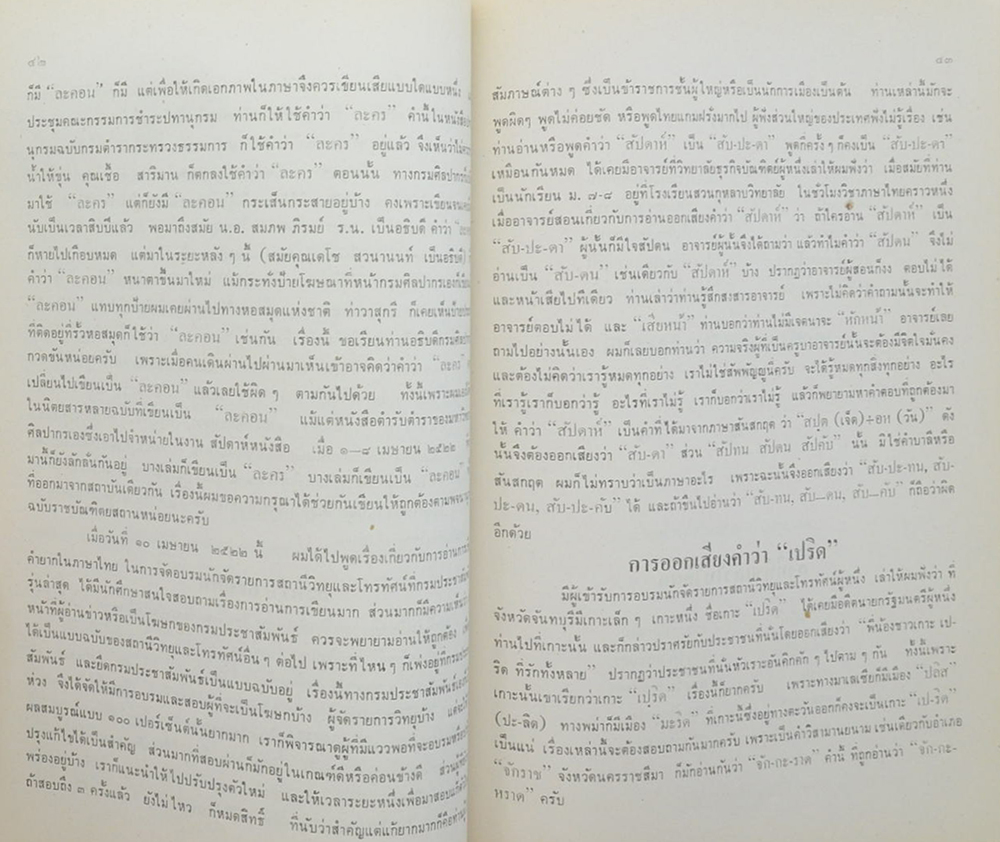 ๔๒
ก็มี “ละคอน” ก็มี แต่เพื่อให้เกิดเอกภาพในภาษาจึงควรเขียนเสียแบบใดแบบหนึ่ง
ประชุมคณะกรรมการชำระปทานุกรม ท่านก็ให้ใช้คำว่า “ละคร” คำนี้ในหนังสือ
นุกรมฉบับกรมตำรากระทรวงธรรมการ ก็ใช้คำว่า “ละคร” อยู่แล้ว จึงเห็นว่าไม่ควร
น้ำให้ขุ่น คุณเชื้อ สาริมาน ก็ตกลงใช้คำว่า “ละคร” ตอนนั้น ทางกรมศิลปากรจึง
มาใช้ “ละคร” แต่ก็ยังมี “ละคอน” กระเส็นกระสายอยู่บ้าง คงเพราะเขียนจน
นับเป็นเวลาสิบปีแล้ว พอมาถึงสมัย น.อ. สมภพ ภิรมย์ ร.น. เป็นอธิบดี คำว่า
ก็หายไปเกือบหมด แต่มาในระยะหลัง ๆ นี้ (สมัยคุณเดโช สวนานนท์ เป็นอธิบดี)
คำว่า “ละคอน” หนาตาขึ้นมาใหม่ แม้กระทั่งป้ายโฆษณาที่หน้ากรมศิลปากรเองก็
“ละคอน” แทบทุกป้ายผมเคยผ่านไปทางหอสมุดแห่งชาติ ท่าวาสุกรี ก็เคยเห็นป้าย
ที่ติดอยู่ที่รั้วหอสมุดก็ใช้ว่า “ละคอน” เช่นกัน เรื่องนี้ ขอเรียนท่านอธิบดีกรมศิลป
กวดขันหน่อยครับ เพราะเมื่อคนเดินผ่านไปผ่านมาเห็นเข้าอาจคิดว่าคำว่า “ละคร”
เปลี่ยนไปเขียนเป็น “ละคอน” แล้วเลยใช้ผิด ๆ ตามกันไปด้วย ทั้งนี้เพราะผม
ในนิตยสารหลายฉบับที่เขียนเป็น “ละคอน” แม้แต่หนังสือตำรับตำราของมหาวิท
ศิลปากรเองซึ่งเอาไปจำหน่ายในงาน สัปดาห์หนังสือ เมื่อ ๑–๘ เมษายน ๒๕๒๒
มานี้ก็ยังลักลั่นกันอยู่ บางเล่มก็เขียนเป็น “ละคร” บางเล่มก็เขียนเป็น “ละคอน”
ที่ออกมาจากสถาบันเดียวกัน เรื่องนี้ผมขอความกรุณาได้ช่วยกันเขียนให้ถูกต้องตามพจนา
ฉบับราชบัณฑิตยสถานหน่อยนะครับ
เมื่อวันที่ ๑๐ เมษายน ๒๕๒๒ นี้ ผมได้ไปพูดเรื่องเกี่ยวกับการอ่านการ
คำยากในภาษาไทย ในการจัดอบรมนักจัดรายการสถานีวิทยุและโทรทัศน์ที่กรมประชาสัม
รุ่นล่าสุด ได้มีนักศึกษาสนใจสอบถามเรื่องการอ่านการเขียนมาก ส่วนมากก็มีความเห็นว่า
หน้าที่ผู้อ่านข่าวหรือเป็นโฆษกของกรมประชาสัมพันธ์ ควรจะพยายามอ่านให้ถูกต้อง
ได้เป็นแบบฉบับของสถานีวิทยุและโทรทัศน์อื่น ๆ ต่อไป เพราะที่ไหน ๆ ก็เพ่งอยู่ที่กรมประชา
สัมพันธ์ และยึดกรมประชาสัมพันธ์เป็นแบบฉบับอยู่ เรื่องนี้ทางกรมประชาสัมพันธ์
ห่วง จึงได้จัดให้มีการอบรมและสอบผู้ที่จะเป็นโฆษกบ้าง ผู้จัดรายการวิทยุบ้าง
ผลสมบูรณ์แบบ ๑๐๐ เปอร์เซ็นต์นั้นยากมาก เราก็พิจารณาดูผู้ที่มีแววพอที่จะอบรม
ปรุงแก้ไขได้เป็นสำคัญ ส่วนมากที่สอบผ่านก็มักอยู่ในเกณฑ์ดีหรือค่อนข้างดี
พร่องอยู่บ้าง เราก็แนะนำให้ไปปรับปรุงตัวใหม่ และให้เวลาระยะหนึ่งเพื่อมาสอบ
ถ้าสอบถึง ๓ ครั้งแล้ว ยังไม่ไหว ก็หมดสิทธิ์ ที่นับว่าสำคัญแต่แก้ยากมากก็คือ
๔๓
สัมภาษณ์ต่าง ๆ ซึ่งเป็นข้าราชการชั้นผู้ใหญ่หรือเป็นนักการเมืองเป็นต้น ท่านเหล่านี้มักจะ
พูดผิดๆ พูดไม่ค่อยชัด หรือพูดไทยแกมฝรั่งมากไป ผู้ฟังส่วนใหญ่ของประเทศฟังไม่รู้เรื่อง เช่น
ท่านอ่านหรือพูดคำว่า “สัปดาห์” เป็น “สับ-ปะ-ดา” พูดกี่ครั้ง ๆ ก็คงเป็น “สับ-ปะ-ดา”
เหมือนกันหมด ได้เคยมีอาจารย์ที่วิทยาลัยธุรกิจบัณฑิตย์ผู้หนึ่งเล่าให้ผมฟังว่า เมื่อสมัยที่ท่าน
เป็นนักเรียน ม. ๗-๘ อยู่ที่โรงเรียนสวนกุหลาบวิทยาลัย ในชั่วโมงวิชาภาษาไทยคราวหนึ่ง
เมื่ออาจารย์สอนเกี่ยวกับการอ่านออกเสียงคำว่า “สัปดาห์” ว่า ถ้าใครอ่าน “สัปดาห์” เป็น
“สับ-ปะ-ดา” ผู้นั้นก็มีใจสัปดน อาจารย์ผู้นั้นจึงได้ถามว่า แล้วทำไมคำว่า “สัปดน” จึงไม่
อ่านเป็น “สับ-ดน” เช่นเดียวกับ “สัปดาห์” บ้าง ปรากฏว่าอาจารย์ผู้สอนก็งง ตอบไม่ได้
และหน้าเสียไปทีเดียว ท่านเล่าว่าท่านรู้สึกสงสารอาจารย์ เพราะไม่คิดว่าคำถามนั้นจะทำให้
อาจารย์ตอบไม่ได้ และ “เสียหน้า” ท่านบอกว่าท่านไม่มีเจตนาจะ “หักหน้า” อาจารย์เลย
ถามไปอย่างนั้นเอง ผมก็เลยบอกท่านว่า ความจริงผู้ที่เป็นครูบาอาจารย์นั้นจะต้องมีจิตใจมั่นคง
และต้องไม่คิดว่าเรารู้หมดทุกอย่าง เราไม่ใช่สัพพัญญูนี่ครับ จะได้รู้หมดทุกสิ่งทุกอย่าง อะไร
ที่เรารู้เราก็บอกว่ารู้ อะไรที่เราไม่รู้ เราก็บอกว่าเราไม่รู้ แล้วก็พยายามหาคำตอบที่ถูกต้องมา
ให้ คำว่า “สัปดาห์” เป็นคำที่ได้มาจากภาษาสันสกฤต ว่า “สปฺต (เจ็ด)+อห (วัน)” ดัง
นั้นจึงต้องออกเสียงว่า “สับ-ดา” ส่วน “สัปทน สัปดน สัปคับ” นั้น มิใช่คำบาลีหรือ
สันสกฤต ผมก็ไม่ทราบว่าเป็นภาษาอะไร เพราะฉะนั้นจึงออกเสียงว่า “สับ-ปะ-ทน, สับ-
ปะ-ดน, สับ-ปะ-คับ” ได้ และถ้าขืนไปอ่านว่า “สับ-ทน, สับ–ดน, สับ–คับ” ก็ถือว่าผิด
อีกด้วย
การออกเสียงคำว่า “เปริด”
มีผู้เข้ารับการอบรมนักจัดรายการสถานีวิทยุและโทรทัศน์ผู้หนึ่ง เล่าให้ผมฟังว่า ที่
จังหวัดจันทบุรีมีเกาะเล็ก ๆ เกาะหนึ่ง ชื่อเกาะ “เปริด” ได้เคยมีอดีตนายกรัฐมนตรีผู้หนึ่ง
ท่านไปที่เกาะนั้น และก็กล่าวปราศรัยกับประชาชนที่นั่นโดยออกเสียงว่า “พี่น้องชาวเกาะ เป-
ริด ที่รักทั้งหลาย” ปรากฏว่าประชาชนที่นั่นหัวเราะอันคิกคัก ๆ ไปตาม ๆ กัน ทั้งนี้เพราะ
เกาะนั้นเขาเรียกว่าเกาะ “เปฺริด” เรื่องนี้ก็ยากครับ เพราะทางมาเลเซียก็มีเมือง “ปลิส”
(ปะ-ลิด) ทางพม่าก็มีเมือง “มะริด” ที่เกาะนี้ซึ่งอยู่ทางตะวันออกก็คงจะเป็นเกาะ “เป-ริด”
เป็นแน่ เรื่องเหล่านี้จะต้องสอบถามกันมากครับ เพราะเป็นคำวิสามานยนาม เช่นเดียวกับอำเภอ
“จักราช” จังหวัดนครราชสีมา ก็มักอ่านกันว่า “จัก-กะ-ราด” คำนี้ ที่ถูกอ่านว่า “จัก-กะ-
หราด” ครับ